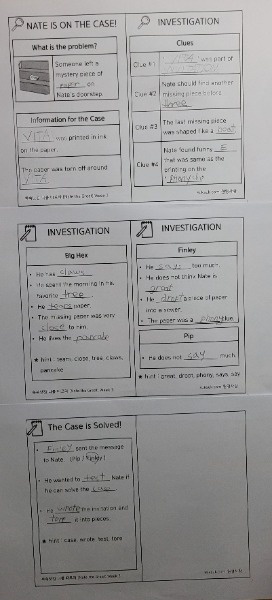 NATE IS ON THE CASE!
What is the problem?
Someone left a
mystery piece of
paper on
Nate's doorstep.
Information for the Case
VITA was printed in ink
on the paper.
The paper was torn off around
VITA
INVESTIGATION
Clues
Clue #1
VITA was part of
Clue #2
Nate should find another
missing piece before
three
Clue #3
The last missing piece
was shaped like a boat
Clue #4
Nate found funny E
that was same as the
printing on the
INVESTIGATION
Big Hex
He has claws
He spent the morning in his
favorite tree
He tears paper.
The missing paper was very
close to him.
He likes the pancake
★ hint : team, close, tree, claws,
pancake
INVESTIGATION
Finley
He says too much.
He does not think Nate is
great
He dropt a piece of paper
into a sewer.
The paper was a phony clue.
Pip
He does not say much.
★ hint : great, drop, phony, says, say
The Case is Solved!
Finley sent the message
to Nate. (Pip / Finley)
He wanted to test Nate if
he can solve the case
He wrote the invitation and
tore it into pieces.
★ hint : case, wrote, test, tore